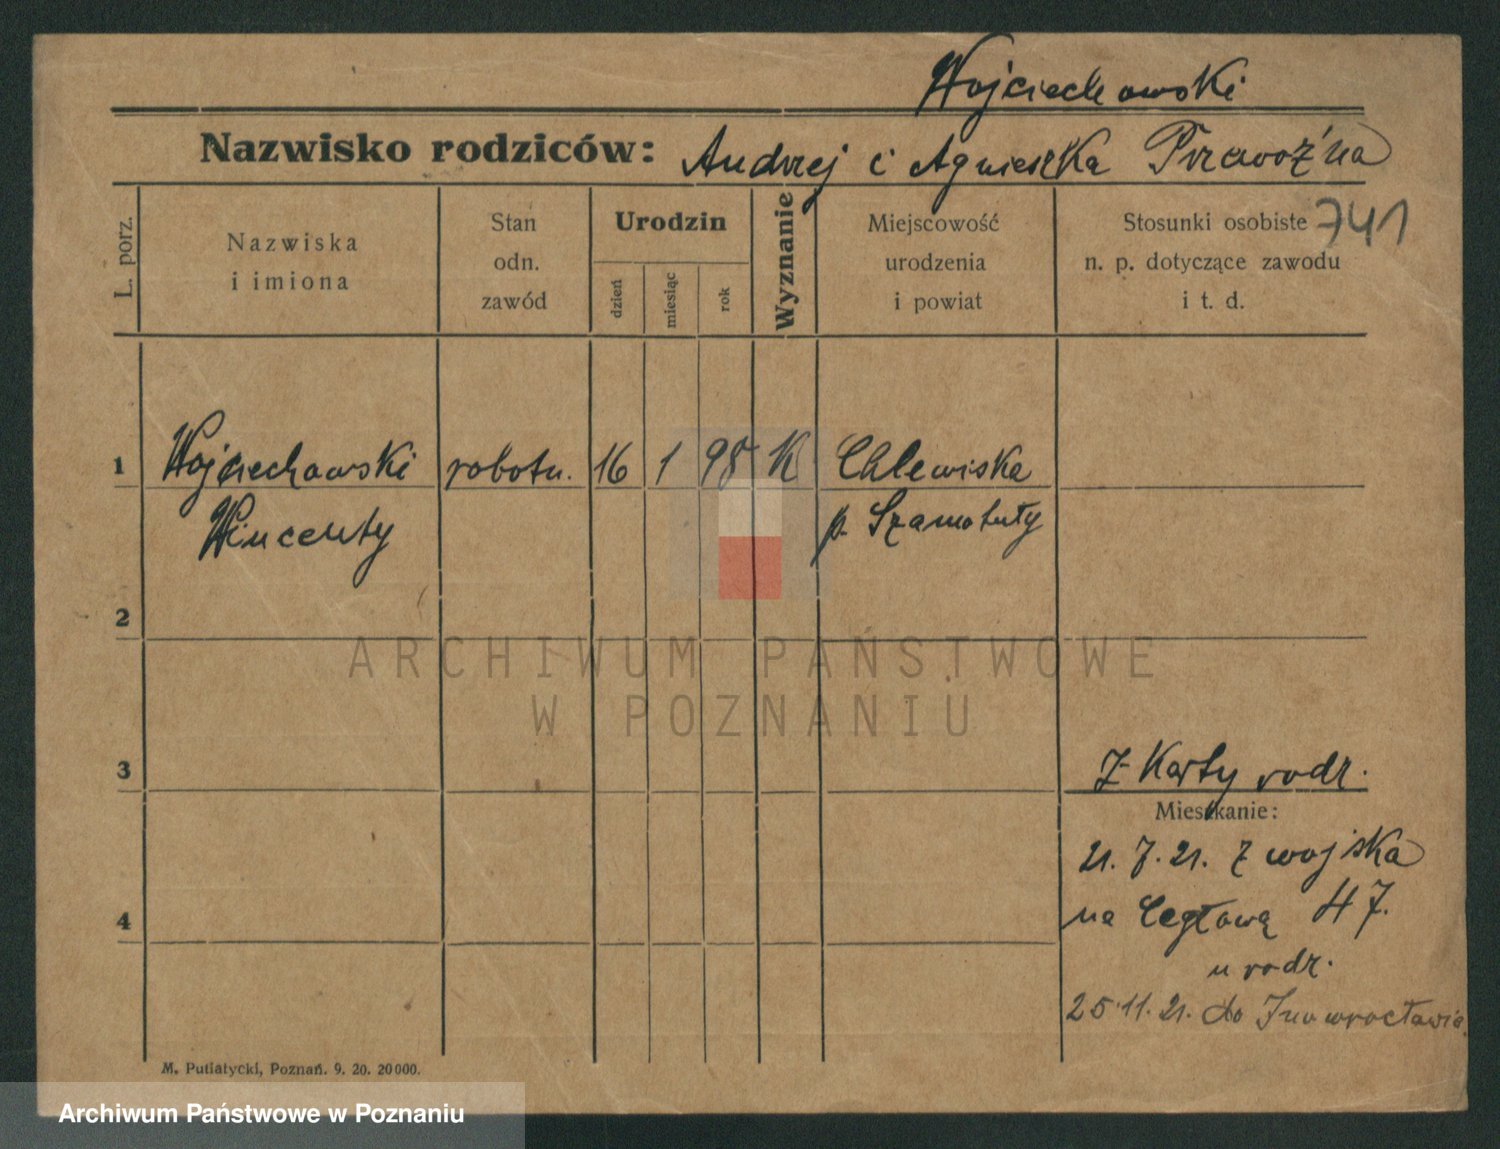 Wojciechowski
Nazwisko rodziców: Andrzej i Agnieszka
L. porz.
Nazwiska
i imiona
Stan
odn.
zawód
Urodzin
dzień
miesiąc
rok
Wyznanie
Miejscowość
urodzenia
i powiat
Stosunki osobiste
n. p. dotyczące zawodu
i t. d.
741
1 Wojciechowski robotn. 16 1 98 K Chlewiska
Wincenty p. Szamotuły
2
3
Z Karty rodz.
Mieszkanie:
21. 7. 21. z wojska
4
na Cegłową 47.
u rodz.
25. 11. 21. do Inowrocławia
M. Putiatycki, Poznań. 9. 20. 20000.
ARCHIWUM PAŃSTWOWE
W POZNANIU
Archiwum Państwowe w Poznaniu